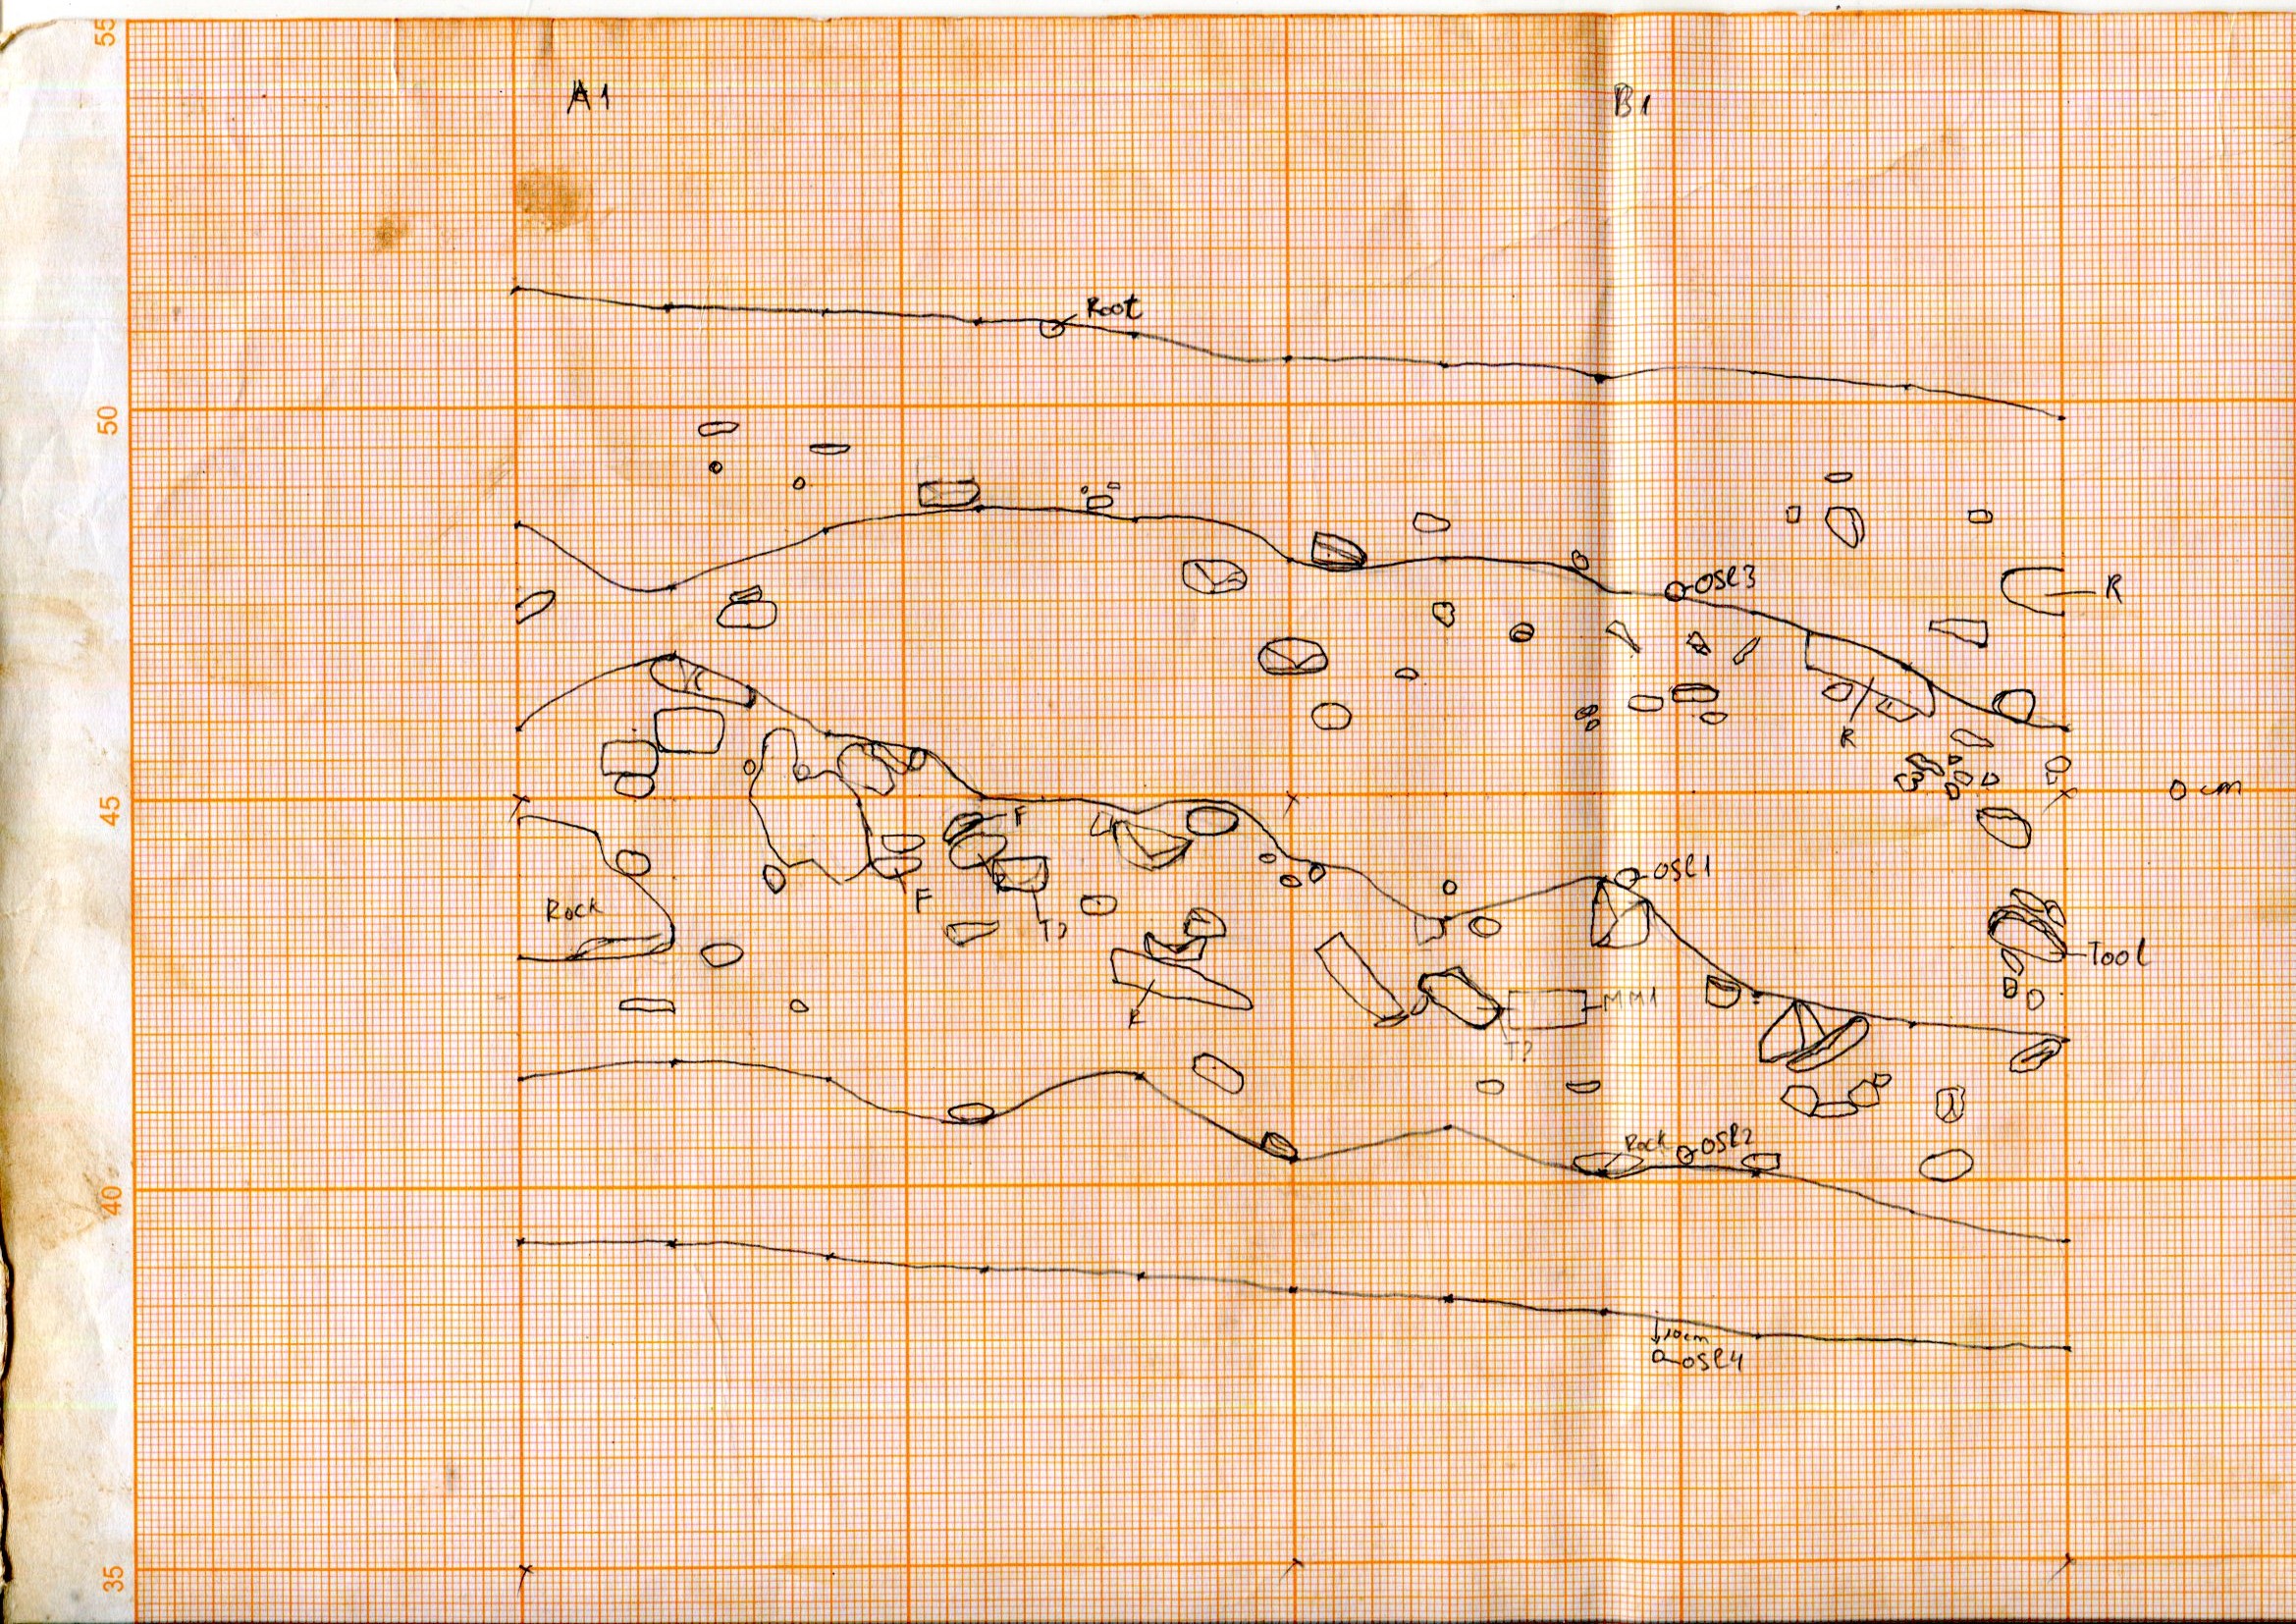 55
A1
B1
Root
50
OSL3
R
R
45
0 cm
F
OSL1
F
Rock
T?
Tool
MM1
T?
Rock
OSL2
40
10cm
OSL4
35